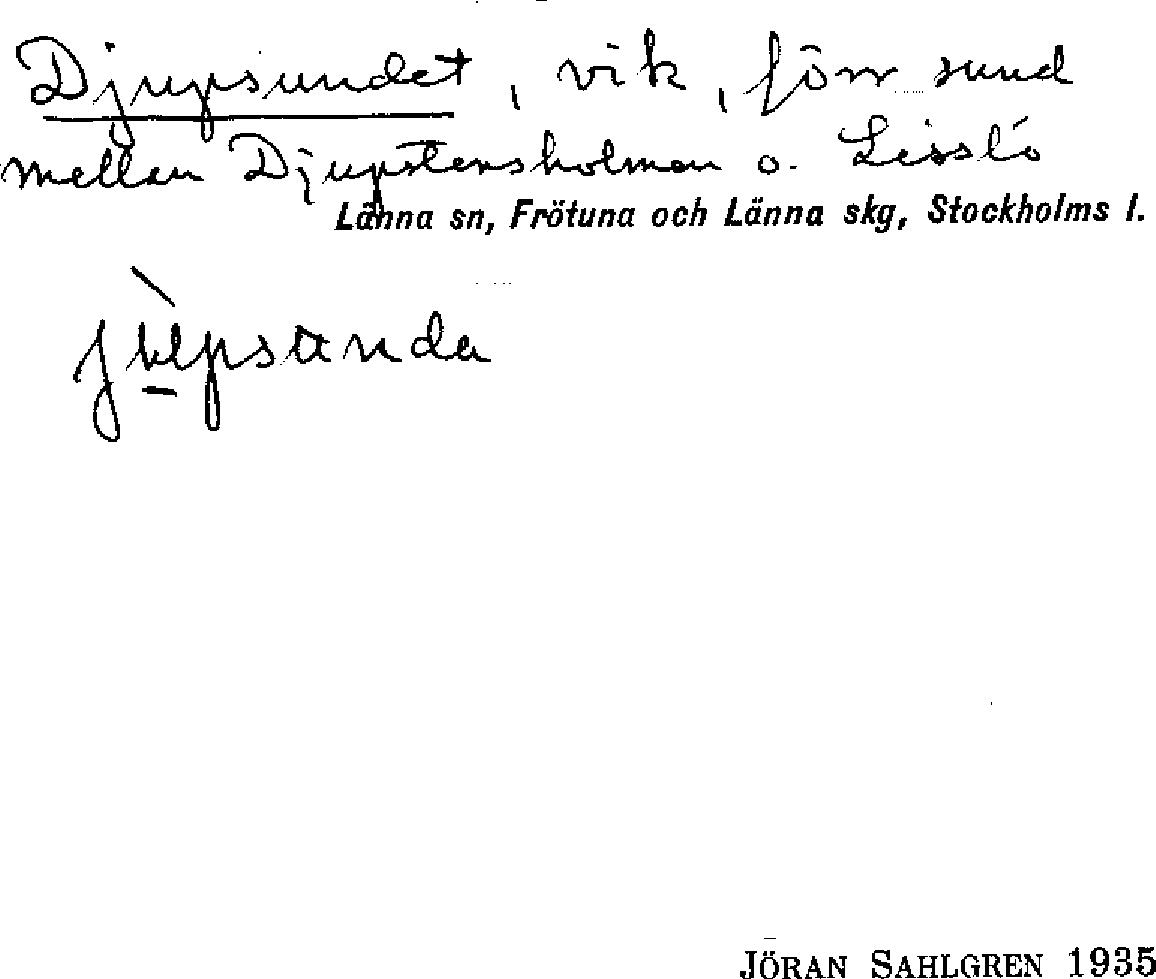 Djupsundet, vik, förr sund
mellan Djupstensholmen o. Lisslö
Länna sn, Frötuna och Länna skg, Stockholms l.
jùpsunda
JÖRAN SAHLGREN 1935